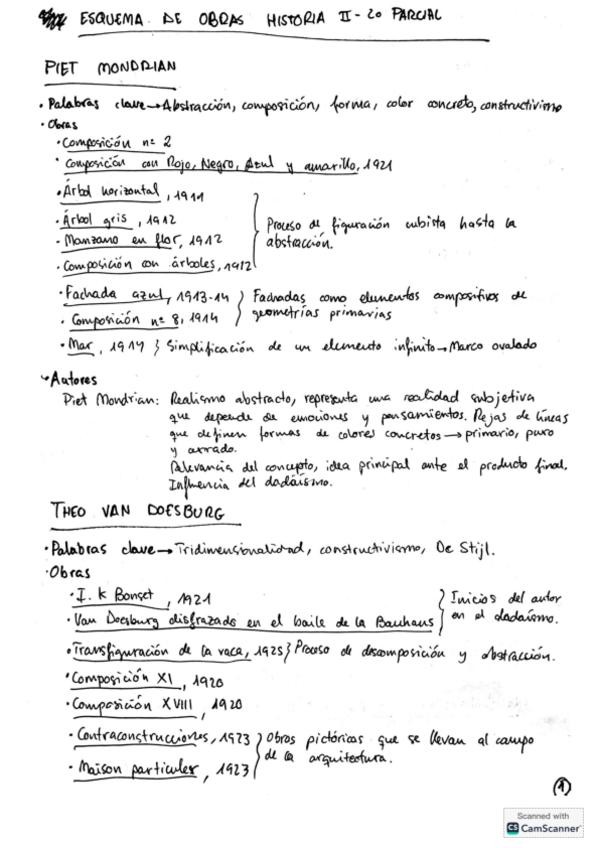 ESQUEMA DE OBRAS HISTORIA II - 2o PARCIAL
PIET MONDRIAN
• Palabras clave → Abstracción, composición, forma, color concreto, constructivismo
• Obras
• Composición nº 2
• Composición con Rojo, Negro, Azul y amarillo, 1921
• Árbol horizontal, 1911
• Árbol gris, 1912
• Manzano en flor, 1912
• Composición con árboles, 1912
Proceso de figuración cubista hasta la
abstracción.
• Fachada azul, 1913-14
• Composición nº 8, 1914
Fachadas como elementos compositivos de
geometrías primarias
• Mar, 1914 } Simplificación de un elemento infinito → Marco ovalado
Autores
Piet Mondrian: Realismo abstracto, representa una realidad subjetiva
que depende de emociones y pensamientos. Rejas de líneas
que definen formas de colores concretos → primario, puro
y
Relevancia del concepto, idea principal ante el producto final.
Influencia del dadaísmo.
THEO VAN DOESBURG
• Palabras clave → Tridimensionalidad, constructivismo, De Stijl.
• Obras
• I. K Bonset, 1921
• Van Doesburg disfrazado en el baile de la Bauhaus
Inicios del autor
en el dadaísmo.
• Transfiguración de la vaca, 1925 } Proceso de descomposición y abstracción.
• Composición XI, 1920
• Composición XVIII, 1920
• Contraconstrucciones, 1923
• Maison particuler, 1923
Obras pictóricas que se llevan al campo
de la arquitectura.
1
Scanned with
CS CamScanner